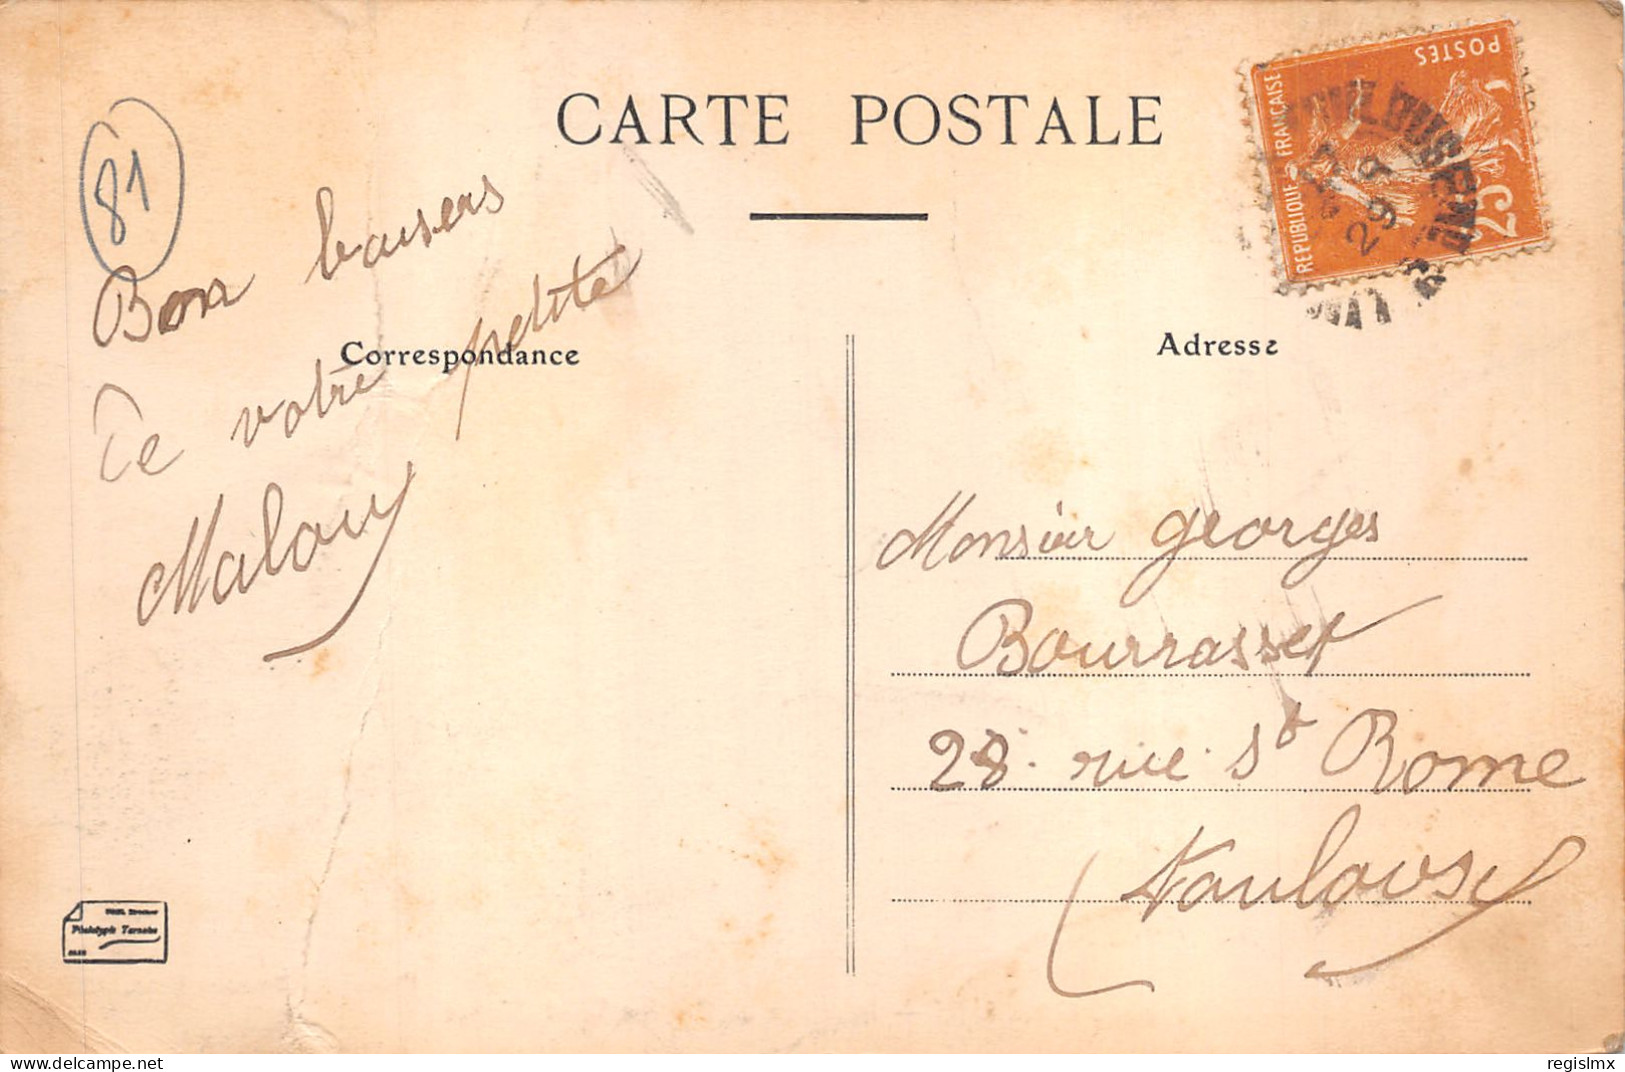 CARTE POSTALE
81
Bon baisers
Correspondance
De votre petite
Malouy
POSTES
REPUBLIQUE FRANÇAISE
25
29
Adresse
Monsieur georges
Bourrasset
28 rue St Rome
Toulouse
Phototypie Tarnaise
delcampe.net
regislmx